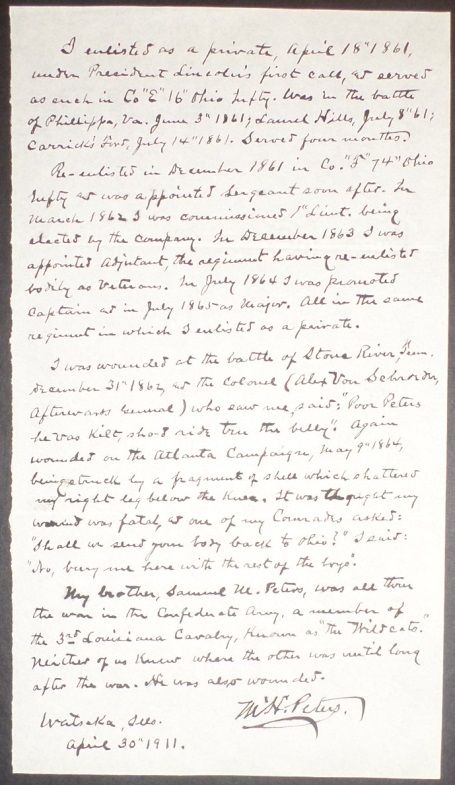 I enlisted as a private, April 18" 1861,
under President Lincoln's first call, & served
as such in Co "E" 16" Ohio Infty. Was in the battle
of Phillippa, Va. June 3" 1861; Laurel Hills, July 8" 61;
Carrick's Ford, July 14" 1861. Served four months.
Re-enlisted in December 1861 in Co. "F" 74" Ohio
Infty & was appointed Sergeant soon after. In
March 1862 I was commissioned 1" Lieut. being
elected by the company. In December 1863 I was
appointed Adjutant, the regiment having re-enlisted
bodily as Veterans. In July 1864 I was promoted
Captain & in July 1865 as Major. All in the same
regiment in which I enlisted as a private.
I was wounded at the battle of Stone River, Tenn.
December 31" 1862, & the Colonel (Alex Von Schrader,
Afterwards General) who saw me, said: "Poor Peters
he vas kilt, shot ride tru the belly". Again
wounded on the Atlanta Campaign, May 9" 1864,
being struck by a fragment of shell which shattered
my right leg below the Knee. It was thought my
wound was fatal, & one of my Comrades asked:
"Shall we send your body back to Ohio?" I said:
"No, bury me here with the rest of the boys".
My brother, Samuel M. Peters, was all thru
the war in the Confederate Army, a member of
the 3rd Louisiana Cavalry, Known as "the Wildcats."
Neither of us Knew where the other was until long
after the war. He was also wounded.
M. H. Peters.
Watseka, Ills.
April 30" 1911.